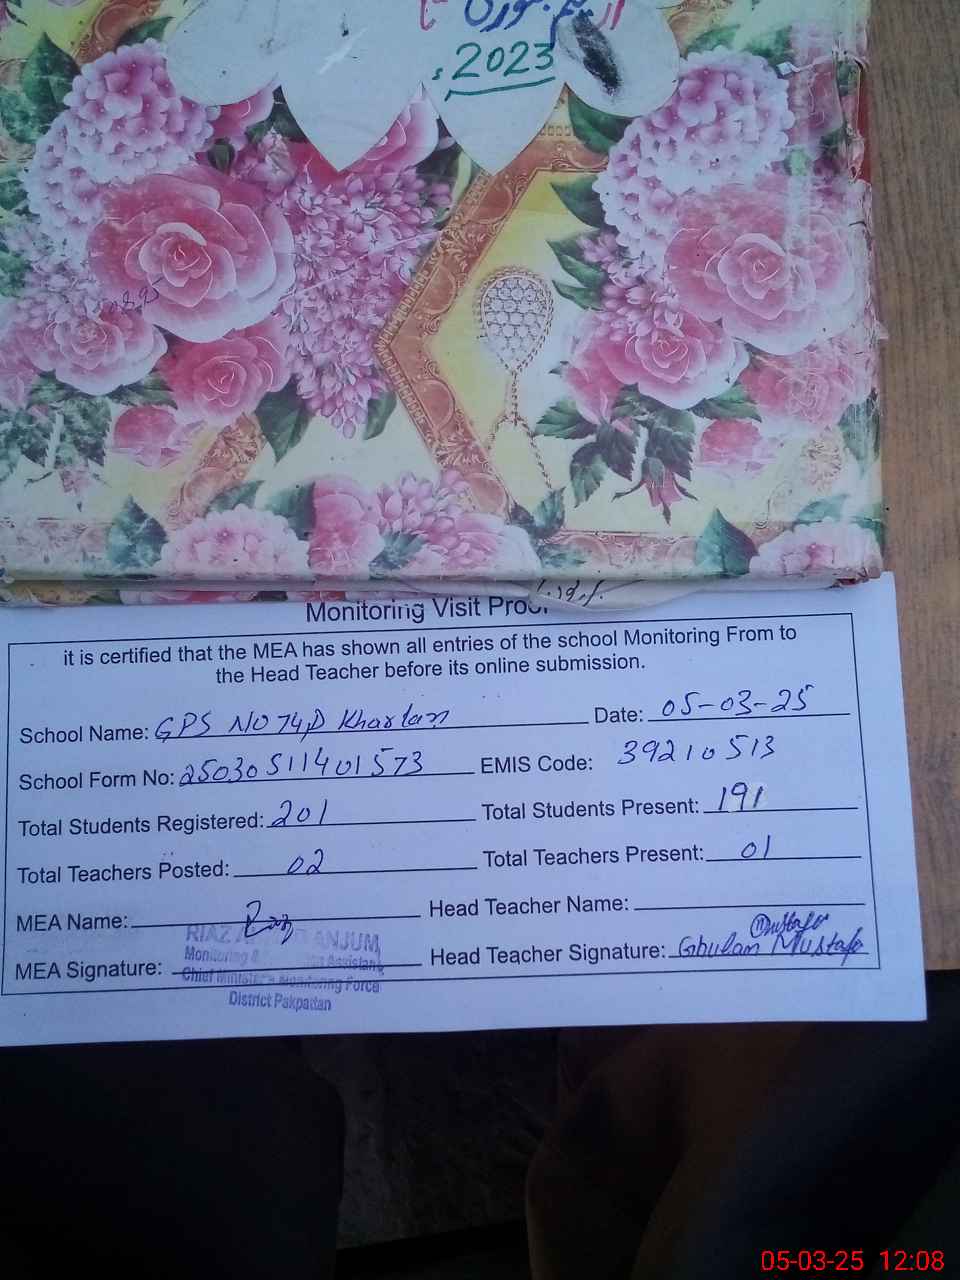 2023
Monitoring Visit Proof
it is certified that the MEA has shown all entries of the school Monitoring From to
the Head Teacher before its online submission.
School Name: GPS NO 74,D Kharlan Date: 05-03-25
School Form No: 25030511401573 EMIS Code: 39210513
Total Students Registered: 201 Total Students Present: 191
Total Teachers Posted: 02 Total Teachers Present: 01
MEA Name: Head Teacher Name:
Mustafa
MEA Signature: Head Teacher Signature: Ghulam Mustafa
RIAZ ANJUM
Monitoring & Assistant
Chief Minister's Monitoring Force
District Pakpattan
05-03-25 12:08